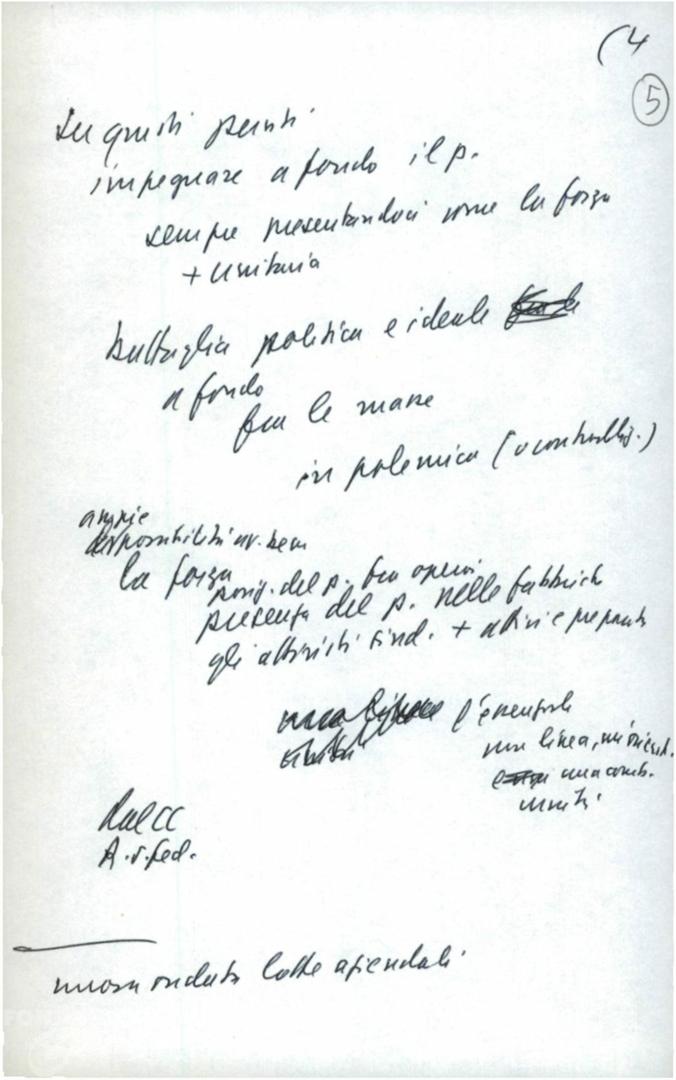 (4
5
Su questi punti
impegnare a fondo il p.
sempre presentandoci come la forza
+ unitaria
battaglia politica e ideale
a fondo
fra le masse
in polemica
ampie
disponibilità
la forza
posiz. del p. fra operai
presenza del p. nelle fabbriche
gli attivisti sind. + attivi e preparati
è essenziale
una linea, un orient.
una comb.
unità
Dal CC
nuova ondata lotte aziendali